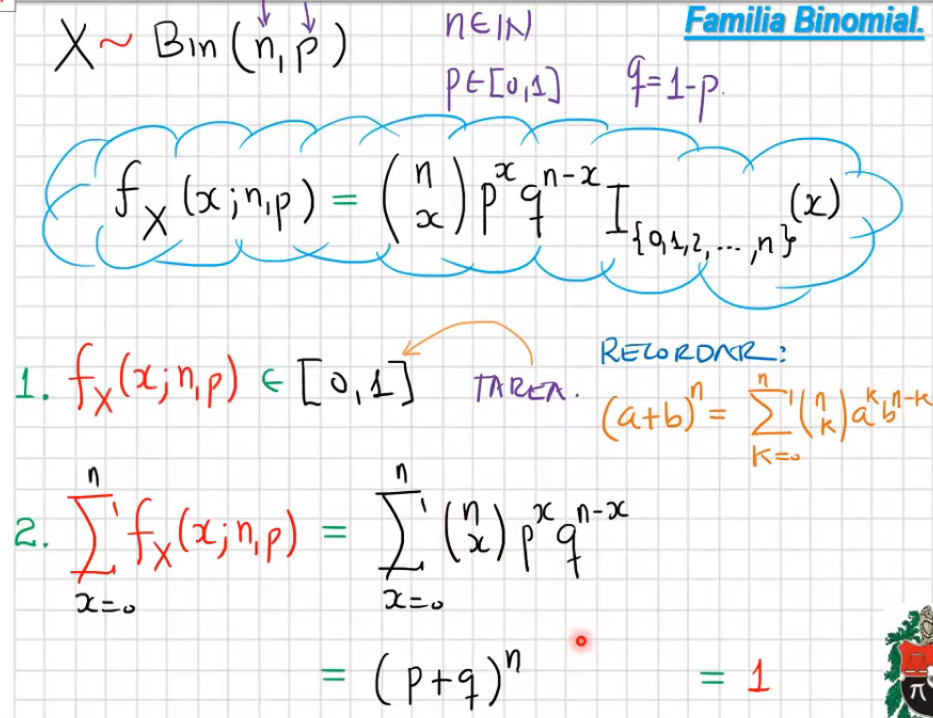 Familia Binomial.
X ~ Bin(n, p)
n ∈ ℕ
p ∈ [0,1]
q = 1-p.
f_X (x; n, p) = (n x) p^x q^{n-x} I_{{0,1,2,...,n}} (x)
1. f_X(x; n, p) ∈ [0,1]
TAREA.
RECORDAR:
(a+b)^n = ∑_{k=0}^{n} (n k) a^k b^{n-k}
2. ∑_{x=0}^{n} f_X(x; n, p) = ∑_{x=0}^{n} (n x) p^x q^{n-x}
= (p+q)^n = 1
π